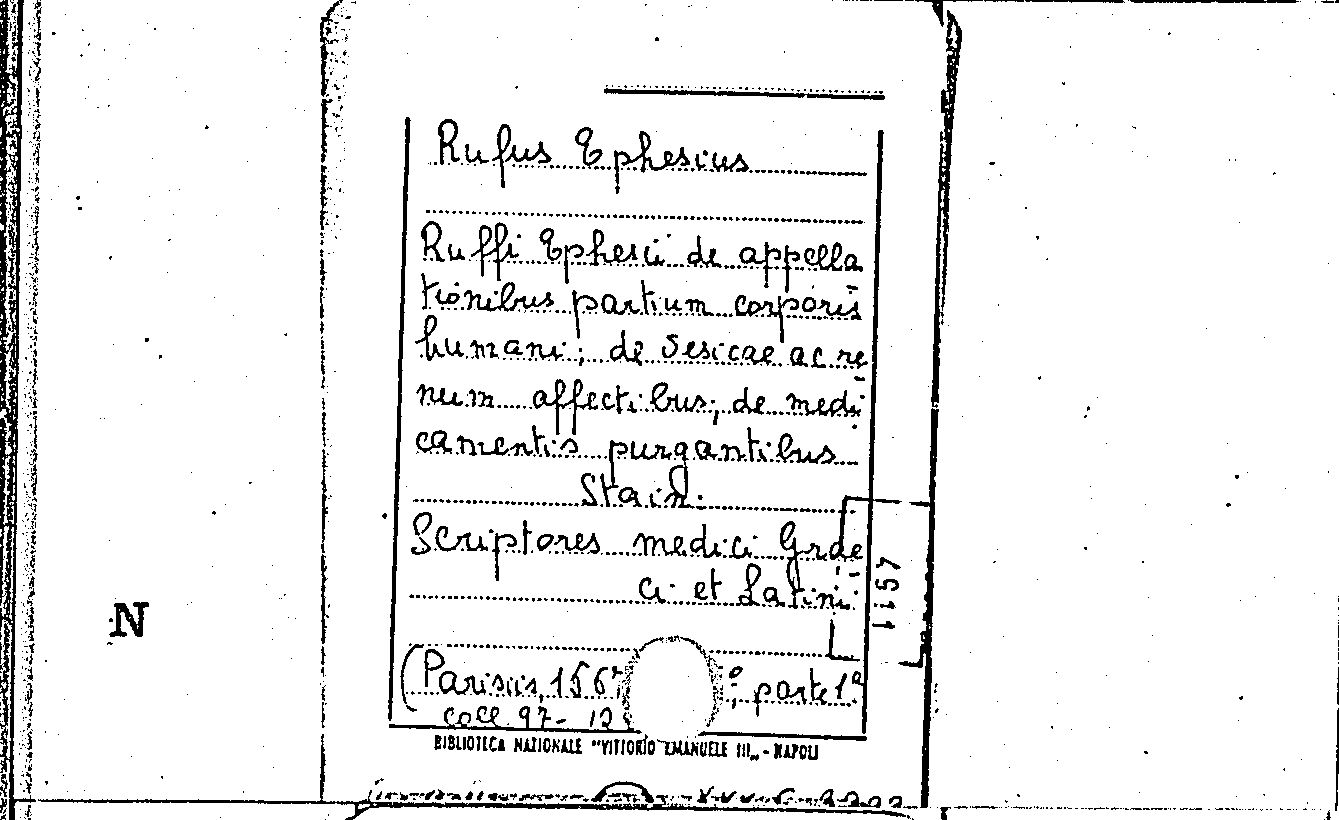 Rufus Ephesius
Ruffi Ephesii de appella
tionibus partium corporis
humani; de vesicae ac re
num affectibus; de medi
camentis purgantibus
Scriptores medici Grae
ci et Latini
N
1157
(Parisiis, 156
; parte 1ª
coll. 97- 12
BIBLIOTECA NAZIONALE "VITTORIO EMANUELE III„ - NAPOLI